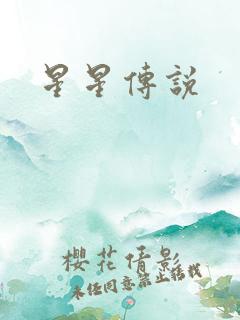 星星傳說
櫻花情影
未经同意禁止转载